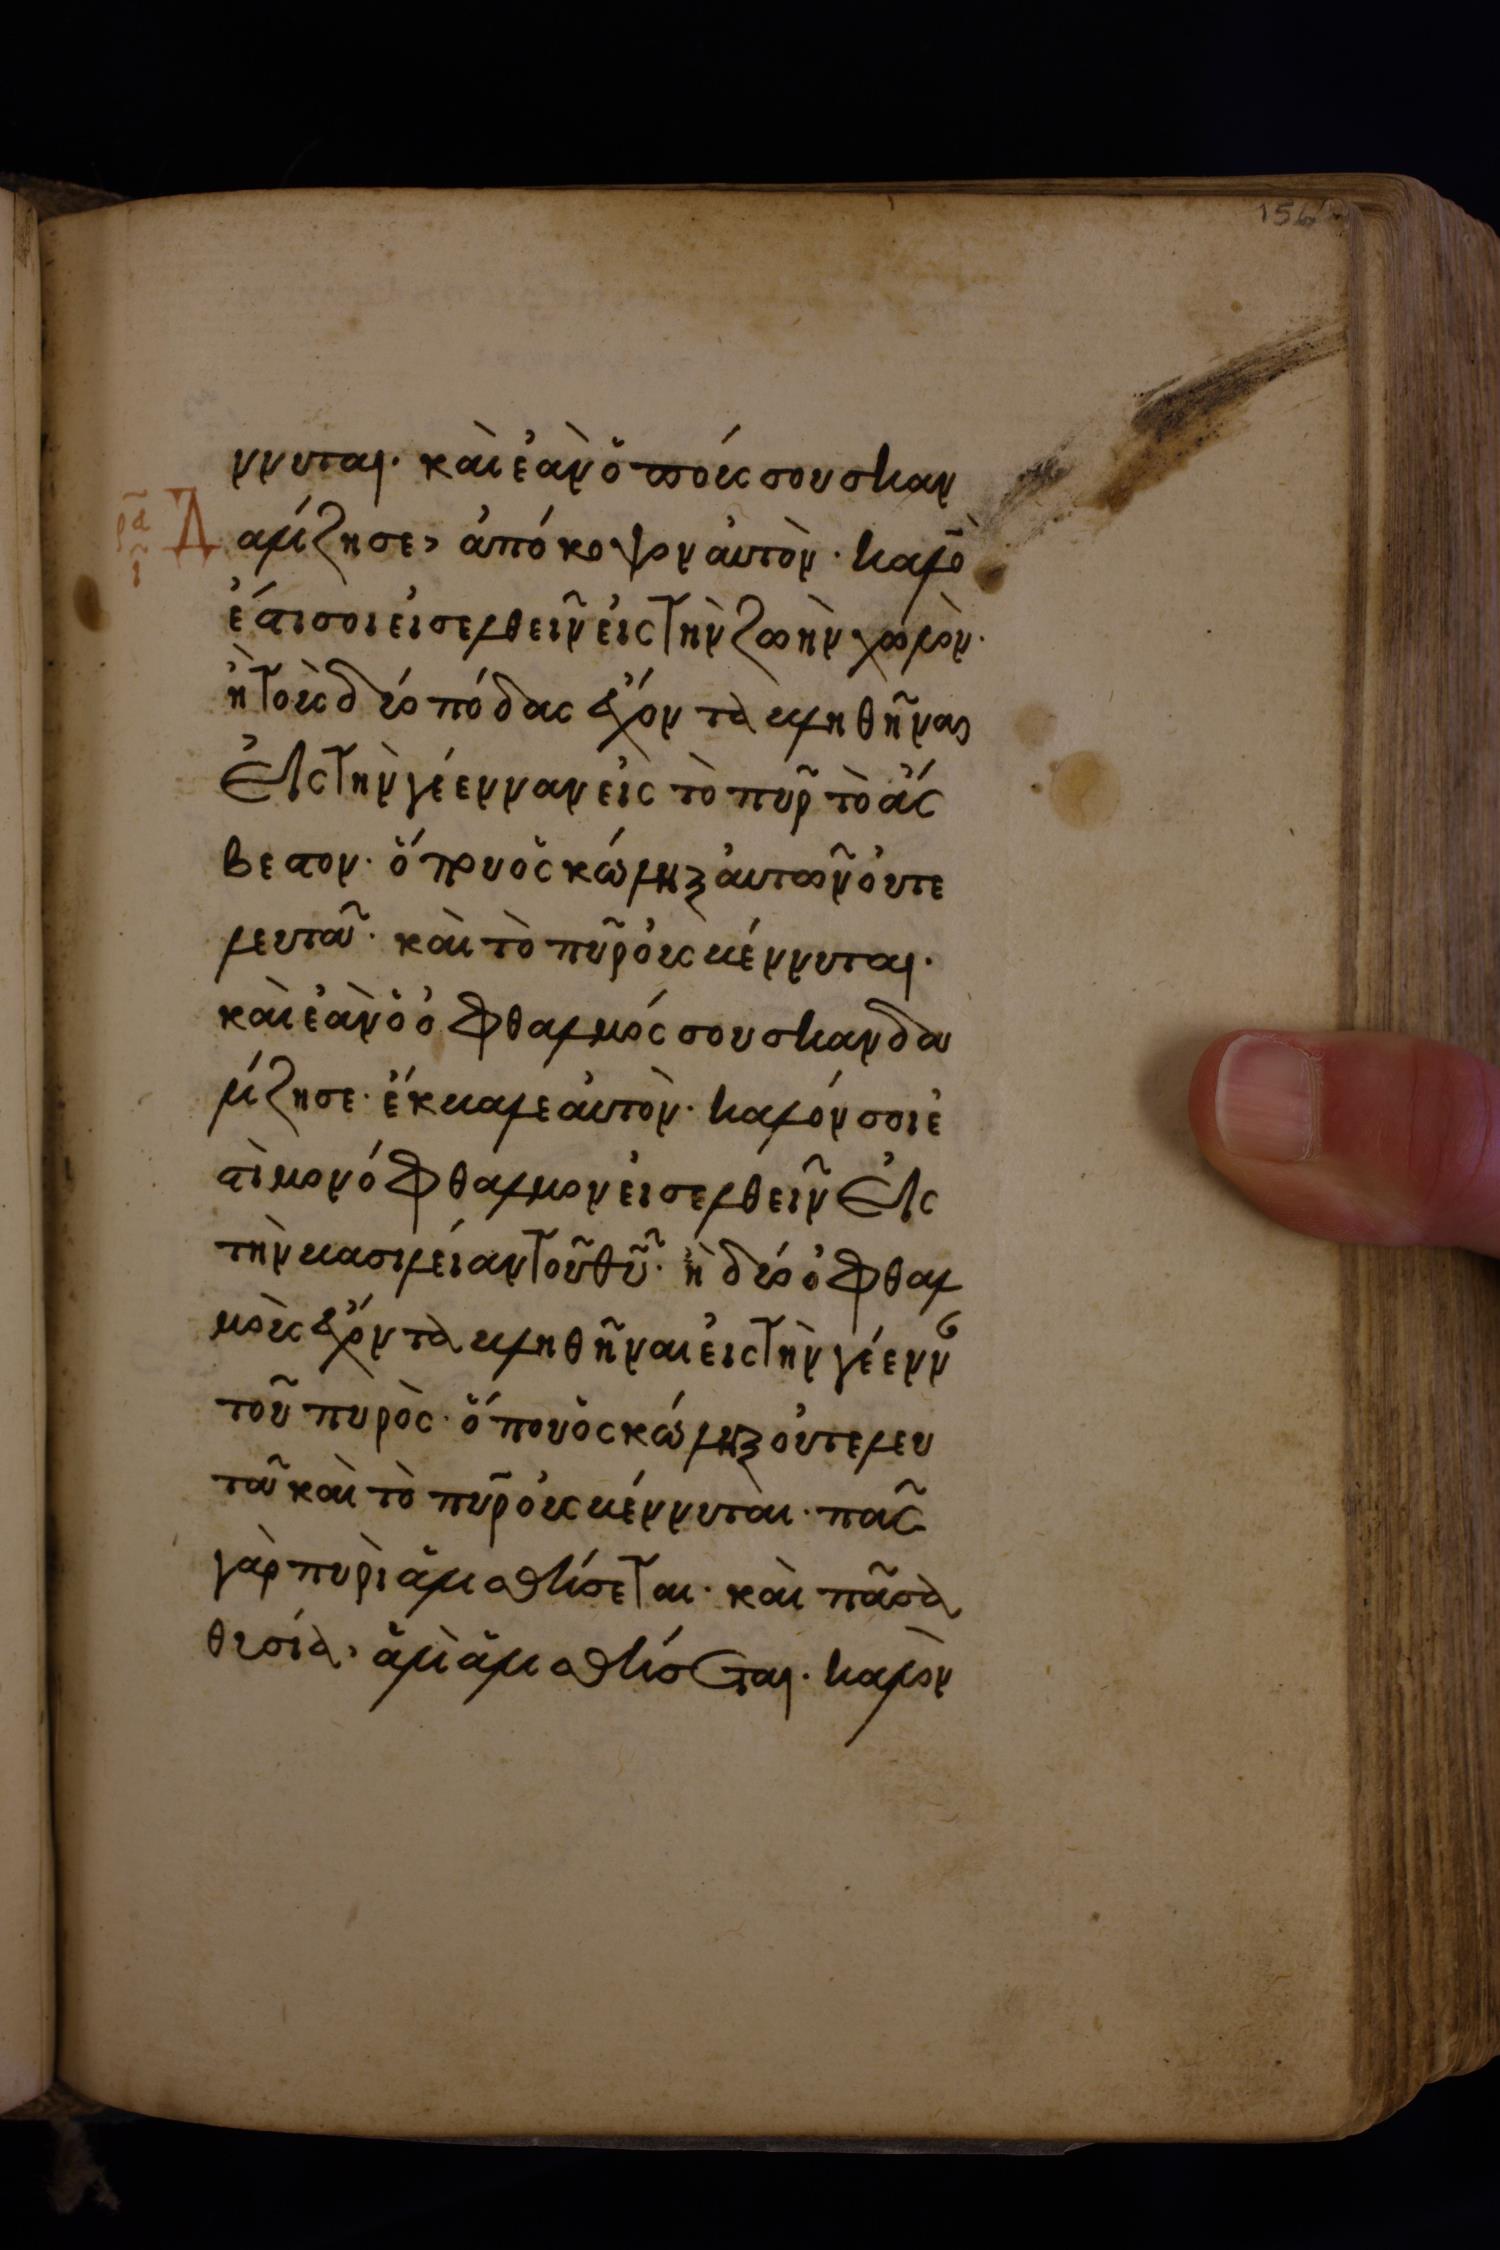 156
ννυται. καὶ ἐὰν ὁ ποῦς σου σκαν
ρα
ι
Δ αλίζη σε, ἀπόκοψον ἀυτὸν. καλὸ
ἐστι σοι εἰσελθεῖν εἰς τὴν ζωὴν χωλὸν.
ἢ τοὺς δύο πόδας ἔχοντα κληθῆναι
Εἰς τὴν γέενναν εἰς τὸ πῦρ τὸ ἄς
βεστον. ὅπου ὁ σκώληξ ἀυτῶν ὀυ τε
λευτᾶ. καὶ τὸ πῦρ ὀυ σβέννυται.
καὶ ἐὰν ὁ ὀφθαλμός σου σκανδα
λίζη σε. ἔκβαλε ἀυτὸν. καλόν σοι ἐ
στὶ μονόφθαλμον εἰσελθεῖν Εἰς
τὴν βασιλείαν τοῦ θυ. ἢ δύο ὀφθαλ
μοὺς ἔχοντα βληθῆναι εἰς τὴν γέενν
τοῦ πυρὸς. ὅπου ὁ σκώληξ ὀυ τελευ
τᾶ καὶ τὸ πῦρ ὀυ σβέννυται. πᾶς
γὰρ πυρὶ ἁλισθήσεται. καὶ πᾶσα
θυσία, ἁλὶ ἁλισθήσεται. καλὸν